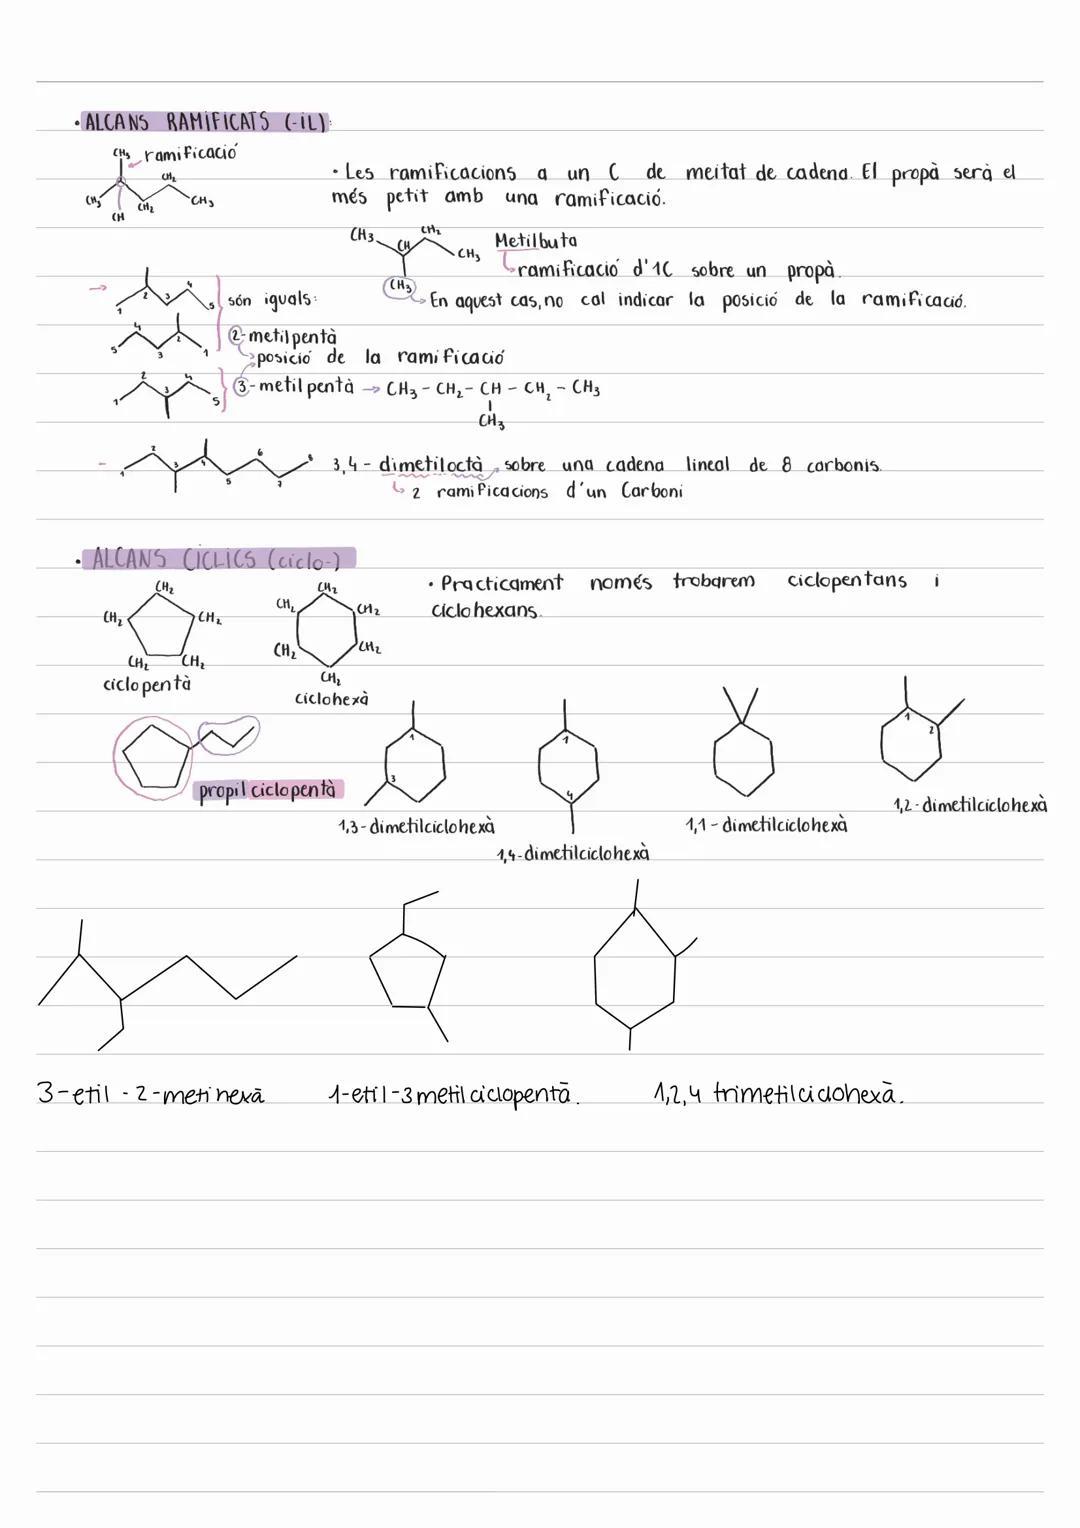 • ALCANS RAMIFICATS (-iL):
CH3 ramificació
CH2
CH3 CH CH2 CH3
• Les ramificacions a un C de meitat de cadena. El propà serà el
més petit amb una ramificació.
CH3 CH CH2 CH3 Metilbuta
ramificació d'1C sobre un propà.
CH3 En aquest cas, no cal indicar la posició de la ramificació.
1 2 3 4 5 són iguals:
5 4 3 2 1 2-metilpentà
posició de la ramificació
1 2 3 4 5 3-metilpentà → CH3 - CH2 - CH - CH2 - CH3
CH3
1 2 3 4 5 6 7 8 3,4 - dimetiloctà sobre una cadena lineal de 8 carbonis.
2 ramificacions d'un Carboni
• ALCANS CÍCLICS (ciclo-)
• Practicament només trobarem ciclopentans i
ciclohexans.
CH2 CH2 CH2 CH2 CH2
CH2 CH2 CH2 CH2 CH2 CH2
ciclopentà
ciclohexà
propil ciclopentà
1 3
1 4
1 2
1,3-dimetilciclohexà
1,4-dimetilciclohexà
1,1-dimetilciclohexà
1,2-dimetilciclohexà
3-etil - 2-metinexā
1-etil-3metilciclopentā.
1,2,4 trimetilciclohexà.